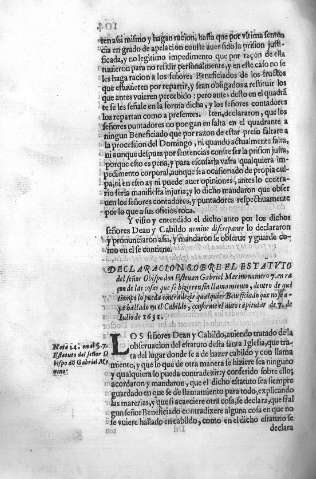 104
ten assi mismo y hagan racion, hasta que por vltima senten
cia en grado de apelacion conste auer sido la prision justi-
ficada, y no legitimo impedimento que por razon de esta
mañeron para no residir personalmente, y en este caso no se
les haga racion a los señores Beneficiados de los fructos
que estuuieren por repartir, y sean obligados a restituir los
que antes vuieren percebido: pero antes desto en el quadrã
te se les señale en la forma dicha, y los señores contadores
los repartan como a presentes. Iten, declararon, que los
señores puntadores no pongan en falta en el quadrante a
ningun Beneficiado que por razon de estar preso faltare a
la procession del Domingo, ni quando actualmente falta,
ni aunque despues por sentencias conste ser la prision justa,
porque esto es pena, y para escusarla vasta qualquiera im-
pedimento corporal, aunque sea ocasionado de propia cul-
pa, ni en esto ay ni puede auer opiniones, antes lo contra-
rio seria manifiesta injuria; y lo dicho mandaron que obser
uen los señores contadores, y puntadores respectiuamente
por lo que a sus oficios toca.
Y visto y entendido el dicho auto por los dichos
señores Dean y Cabildo nemine discrepante lo declararon
y pronunciaron assi, y mandaron se obserue y guarde co-
mo en el se contiene.
DECLARACION SOBRE EL ESTATVTO
del señor Obispo don Esteuan Gabriel Merino numero 7. en ra
zon de las cosas que se hizieren sin llamamiento, dentro de que
tiempo lo pueda contradezir qualquier Beneficiado que no se a-
ya hallado en el Cabildo, conforme el auto capitular de 7. de
Iulio de 1631.
Nota 24. en el §. 7.
Estatuto del señor O
bispo dõ Gabriel Me
rino.
LOS señores Dean y Cabildo, auiendo tratado de la
obseruacion del estatuto desta santa Iglesia, que tra-
ta del lugar donde se a de hazer cabildo y con llama
miento, y que lo que de otra manera se hiziere sea ninguno
y qualquiera lo pueda contradezir y conferido sobre ello;
acordaron y mandaron, que el dicho estatuto sea siempre
guardado en que se de llamamiento para todo, explicando
las materias, y que si acaeciere otra cosa, se declara, que si al
gun señor Beneficiado contradixere alguna cosa en que no
se vuiere hallado en cabildo, como en el dicho estatuto se
declara